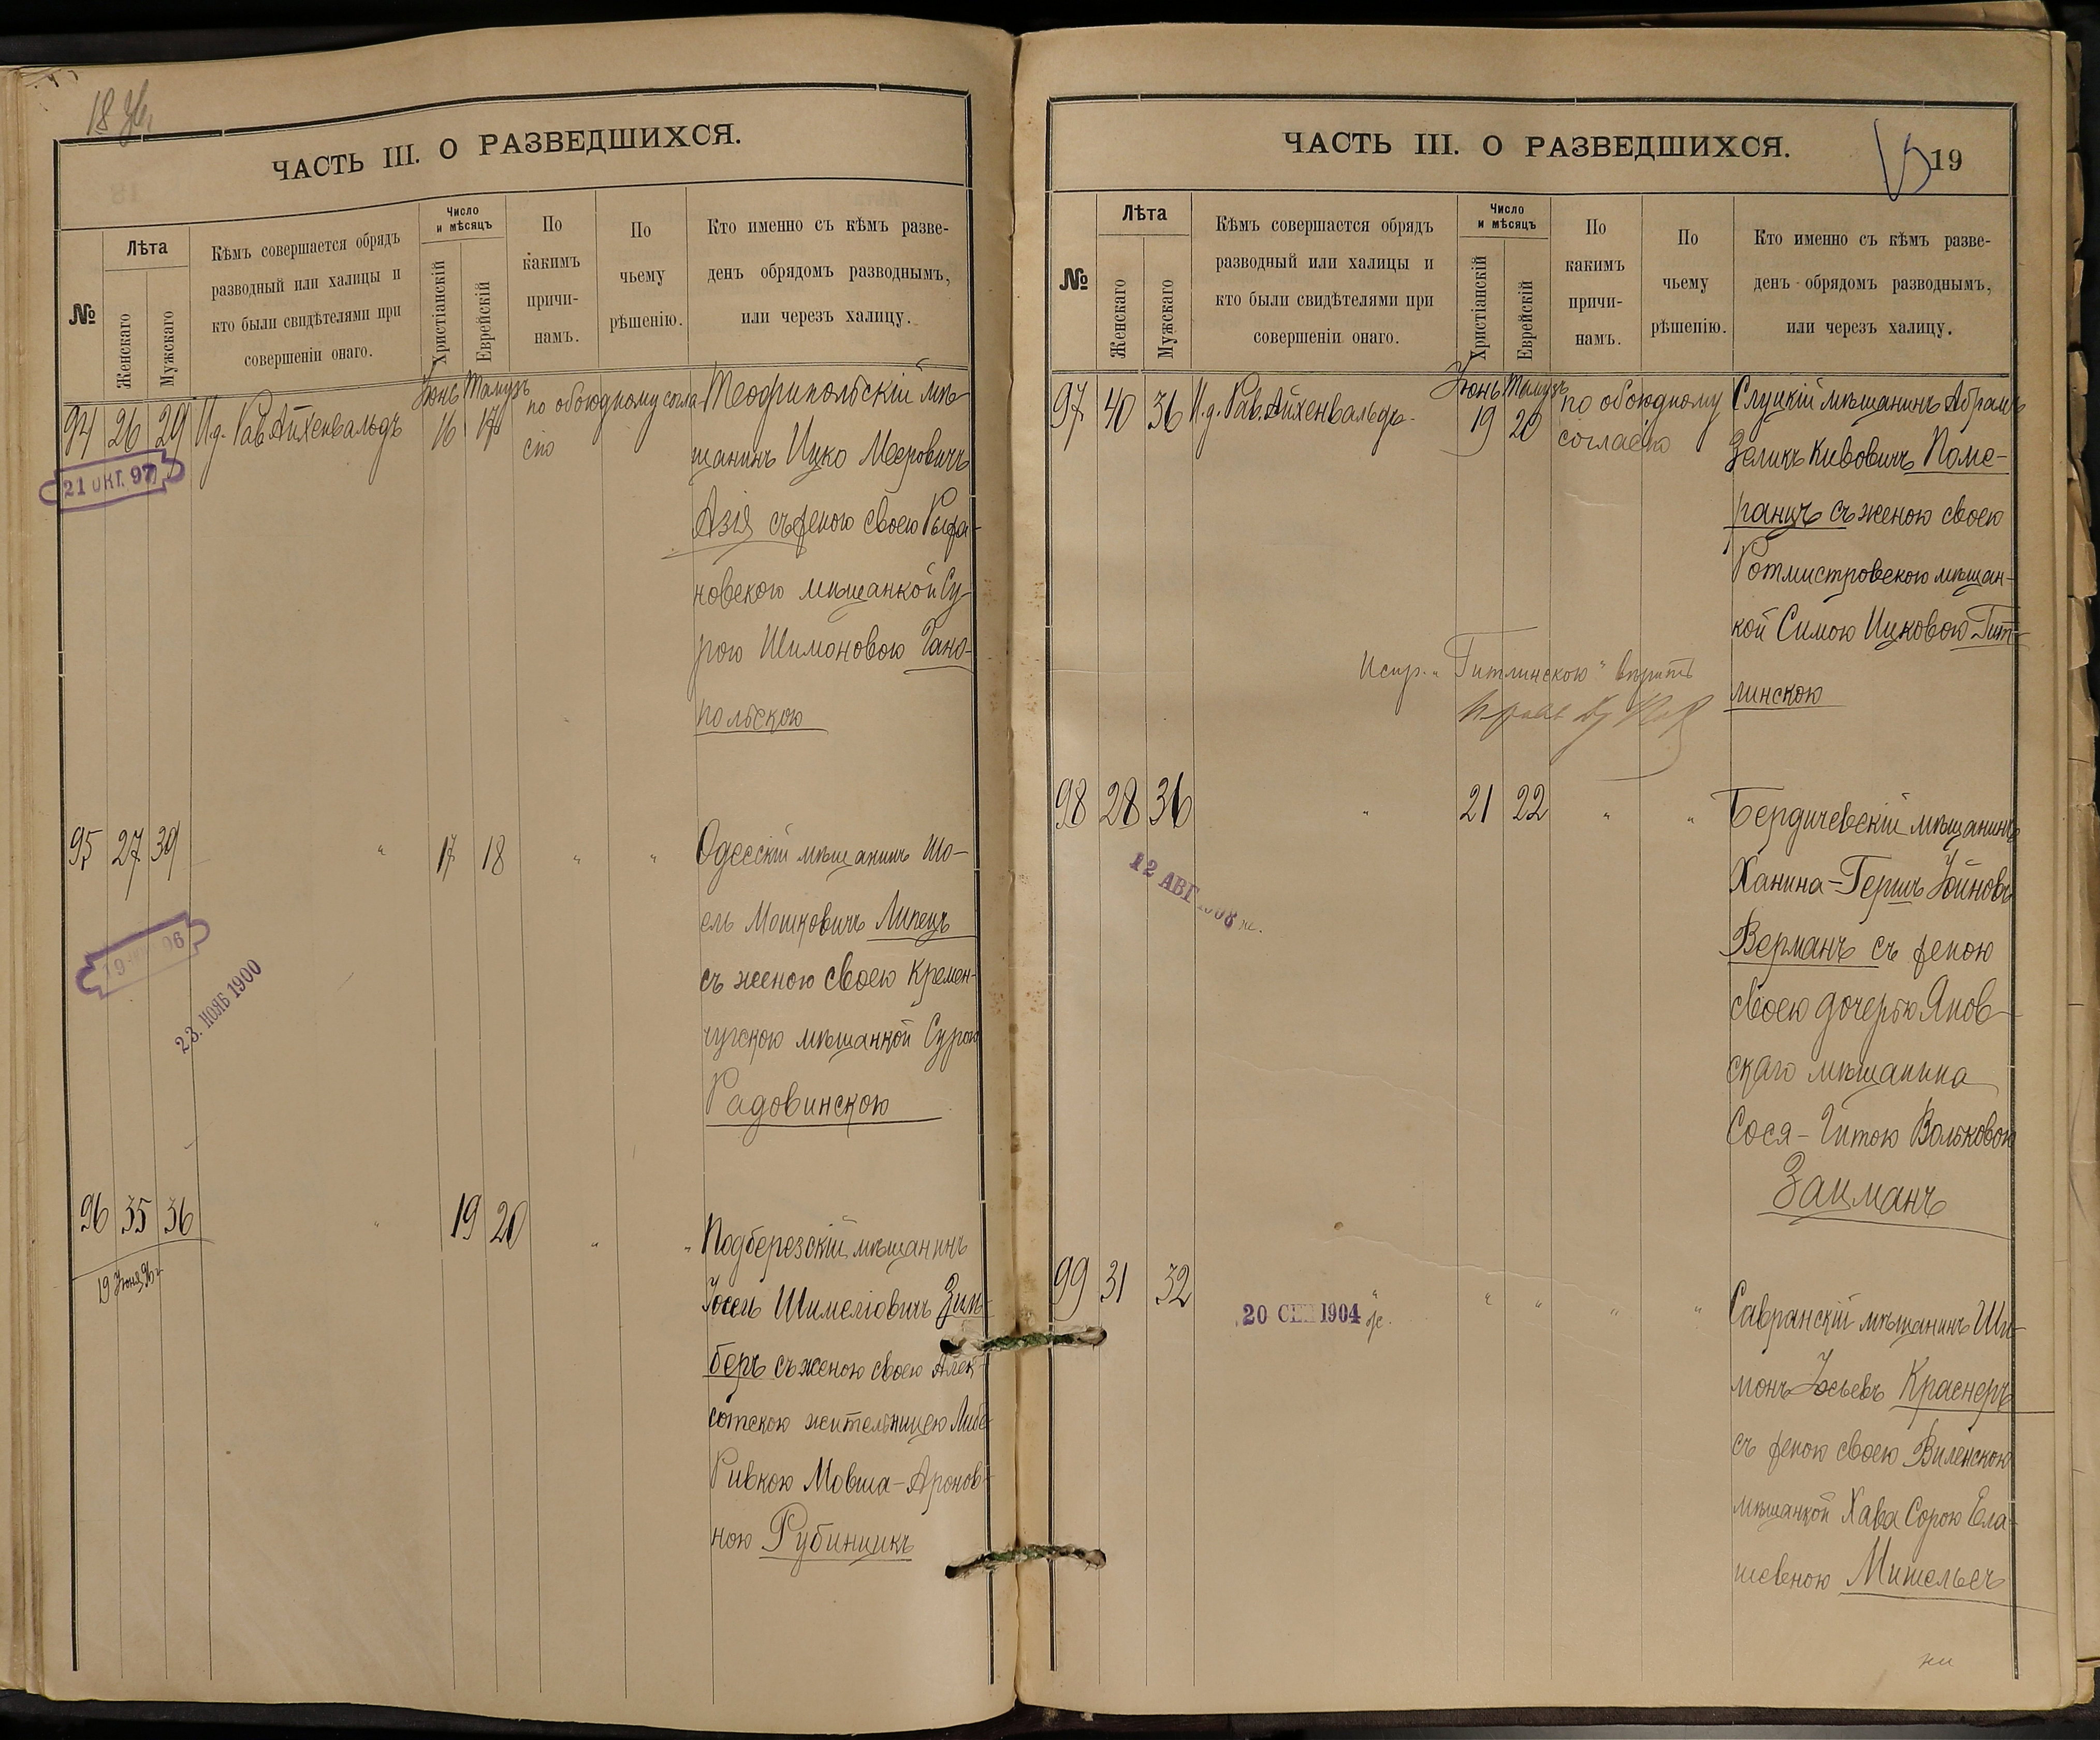 18 96
ЧАСТЬ III. О РАЗВЕДШИХСЯ.
№
Лѣта
Женскаго
Мужскаго
Кѣмъ совершается обрядъ
разводный или халицы и
кто были свидѣтелями при
совершеніи онаго.
Число
и мѣсяцъ
Христіанскій
Еврейскій
По
какимъ
причи-
намъ.
По
чьему
рѣшенію.
Кто именно съ кѣмъ разве-
денъ обрядомъ разводнымъ,
или черезъ халицу.
94 26 29 И.д. Рав. Айхенвальдъ Іюнь 16 Тамузъ 17 по обоюдному согла
сію
Теофипольскій мѣ-
щанинъ Ицко Мееровичъ
Азія съ женою своею
новскою мѣщанкой Су-
рою Шимоновою Гано-
польскою
21 ОКТ. 97
95 27 39 " 17 18 " "
Одесскій мѣщанинъ Шо-
ель Мошковичъ Липецъ
съ женою своею Кремен-
чугскою мѣщанкой Сурою
Радовинскою
19 96
23. НОЯБ 1900
96 35 36 " 19 20 " "
19 Іюня 96 г
Подберезскій мѣщанинъ
Іосель Шимеліовичъ Зиль-
беръ съ женою своею Алек-
сотскою жительницею Либе
Ривкою Мовша-Аронов-
ною Рубинчикъ
ЧАСТЬ III. О РАЗВЕДШИХСЯ.
19
№
Лѣта
Женскаго
Мужскаго
Кѣмъ совершается обрядъ
разводный или халицы и
кто были свидѣтелями при
совершеніи онаго.
Число
и мѣсяцъ
Христіанскій
Еврейскій
По
какимъ
причи-
намъ.
По
чьему
рѣшенію.
Кто именно съ кѣмъ разве-
денъ обрядомъ разводнымъ,
или черезъ халицу.
97 40 36 И.д. Рав. Айхенвальдъ Іюнь 19 Тамузъ 20 по обоюдному
согласію
Слуцкій мѣщанинъ Абрамъ
Зеликъ Кивовичъ Поме-
ранцъ съ женою своею
Ротмистровскою мѣщан-
кой Симою Ицковою Гит-
линскою
Испр. "Гитлинскою" вѣрить
98 28 36 " 21 22 " "
12 АВГ 1908
Бердичевскій мѣщанинъ
Ханина-Гершъ Іойновъ
Верманъ съ женою
своею дочерью Янов-
скаго мѣщанина
Сося-Гитою Вольковою
Зацманъ
99 31 32 " " " " "
20 СЕН 1904
Савранскій мѣщанинъ Ши-
монъ Іосьевъ Краснеръ
съ женою своею Виленскою
мѣщанкой Хава Сорою Ела-
шевною Мительесъ